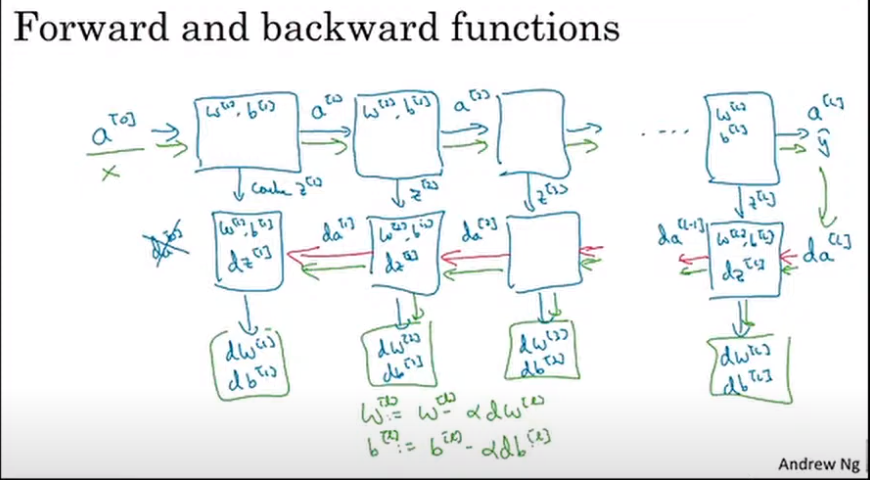 Forward and backward functions
a^[0] w^[1], b^[1] a^[1] w^[2], b^[2] a^[2] .... w^[L] a^[L]
x b^[L] ŷ
cache z^[1] z^[2] z^[3] z^[L]
da^[0] w^[1], b^[1] da^[1] w^[2], b^[2] da^[2] da^[L-1] w^[L], b^[L] da^[L]
dz^[1] dz^[2] dz^[L]
dw^[1] dw^[2] dw^[3] dw^[L]
db^[1] db^[2] db^[3] db^[L]
w^[l] := w^[l] - αdw^[l]
b^[l] := b^[l] - αdb^[l]
Andrew Ng